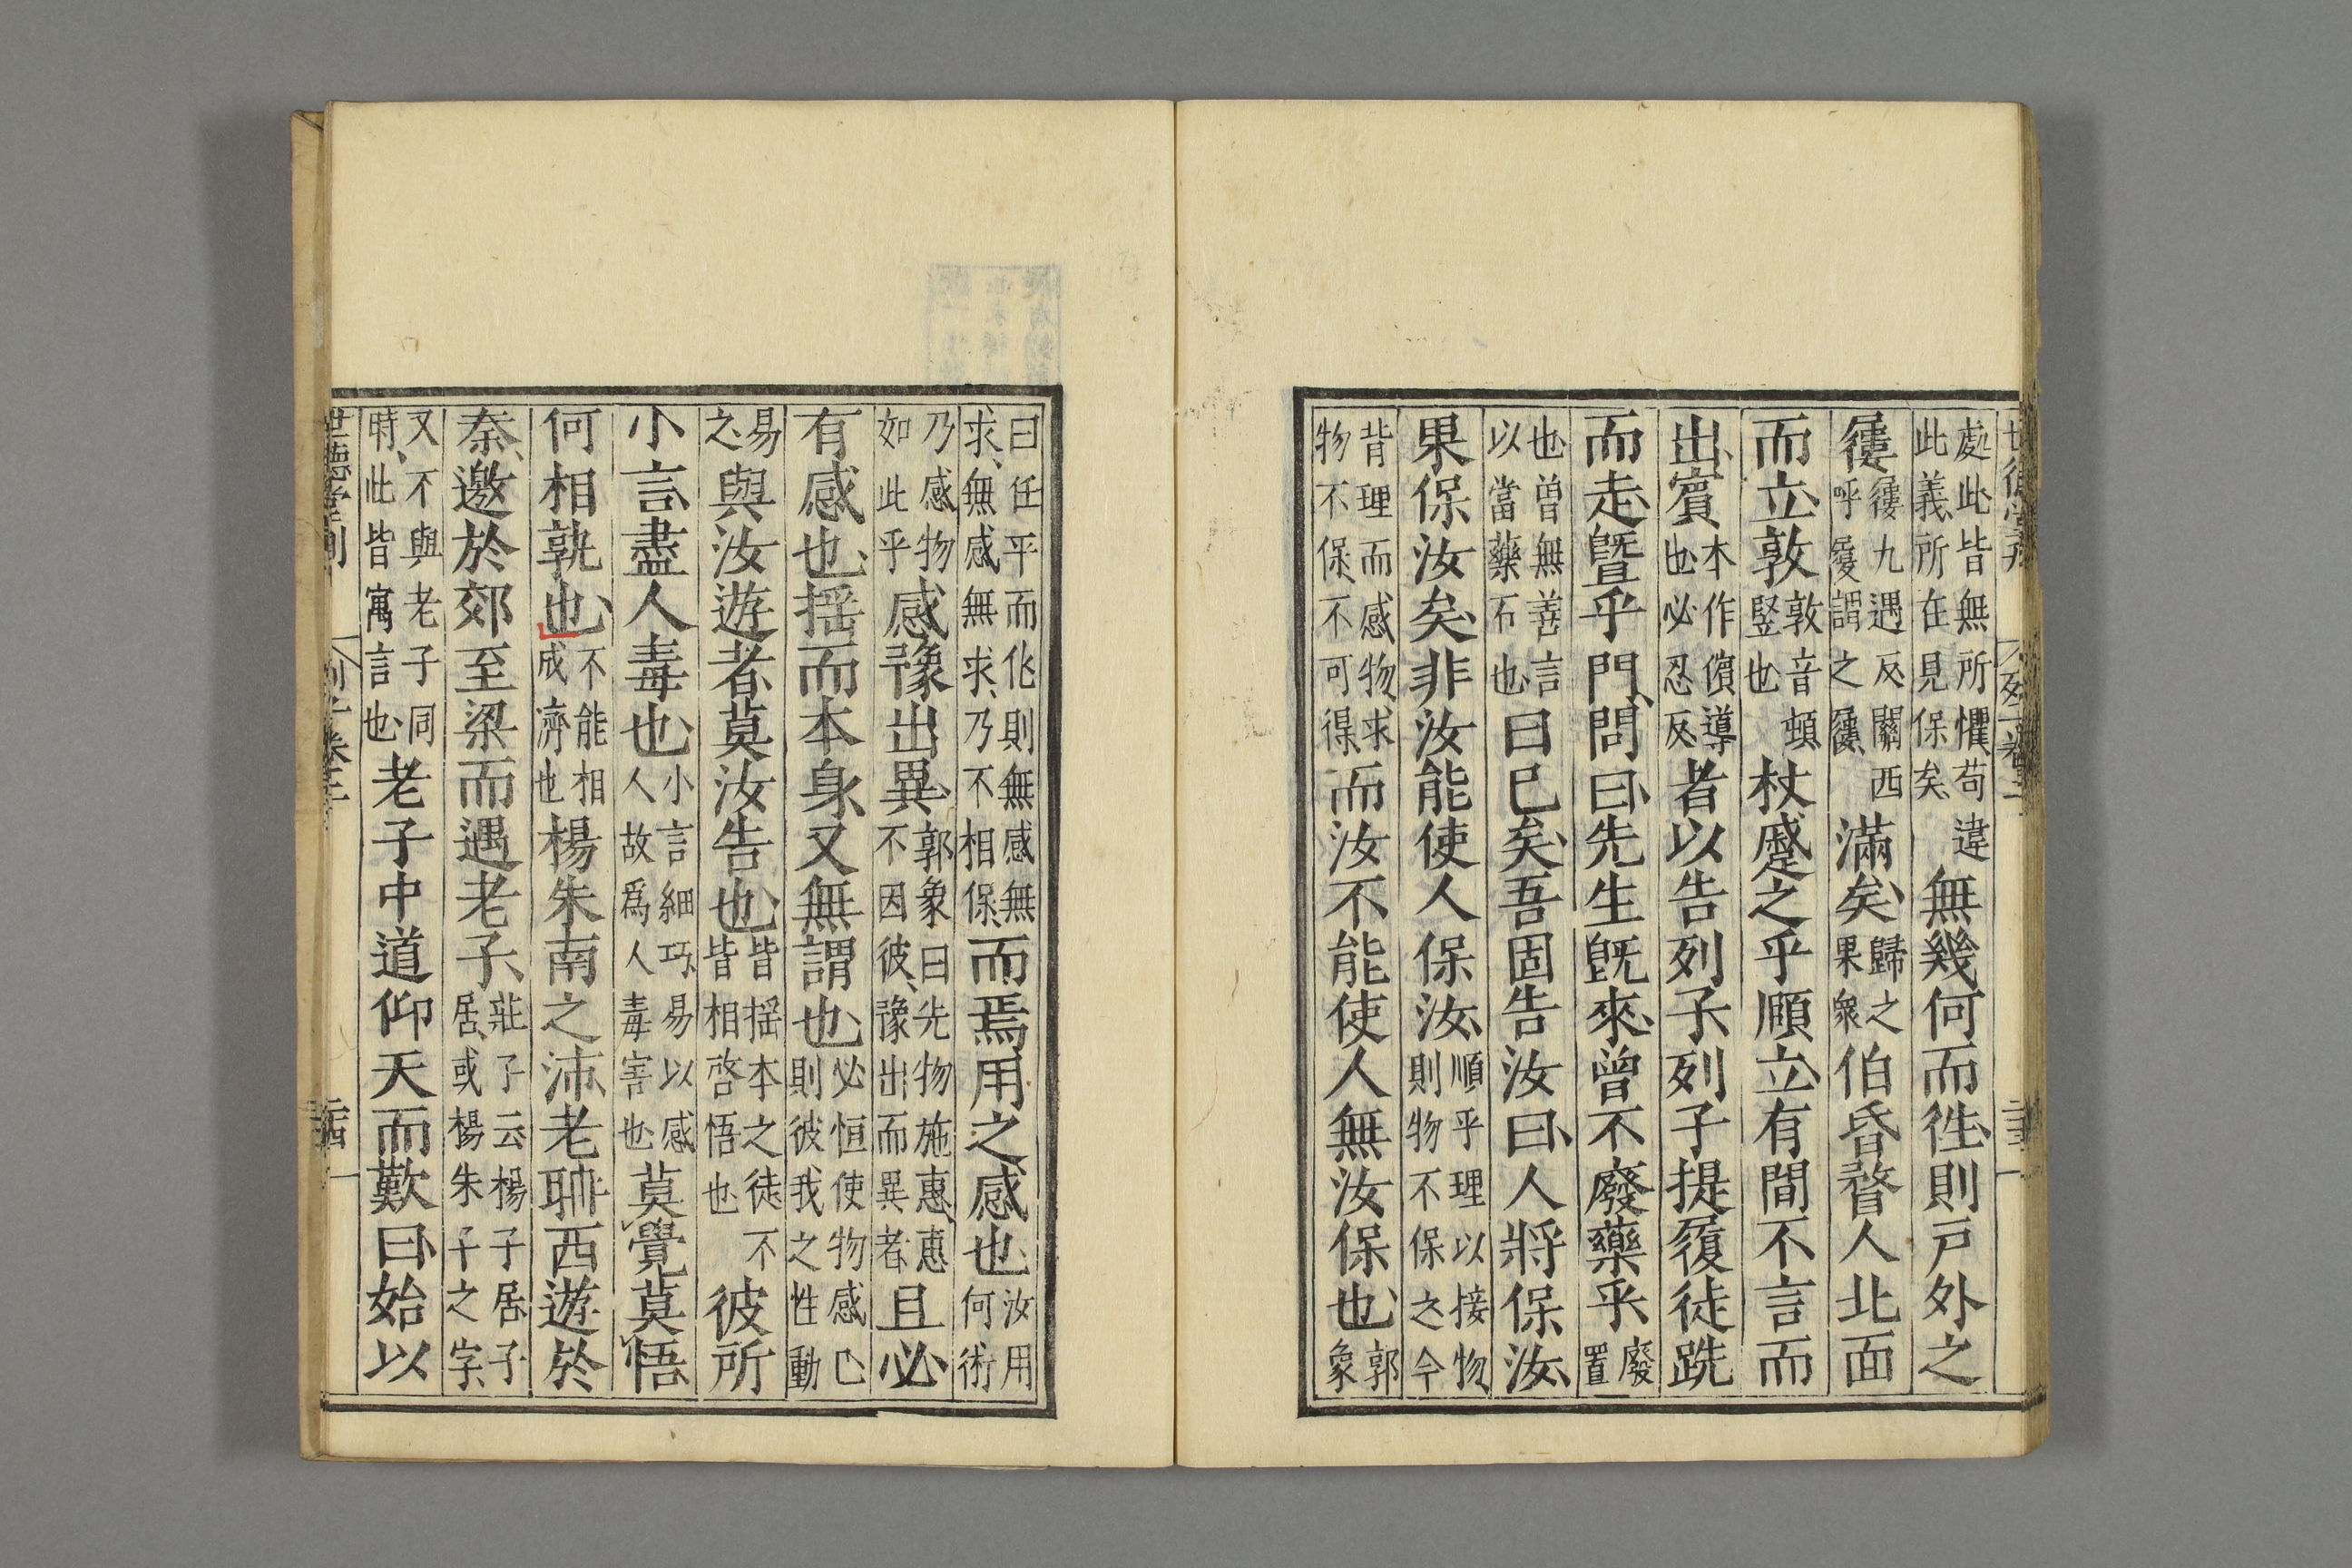 處此皆無所懼苟違
此義所在見保矣無幾何而徃則戸外之
屨屨九遇反關西
呼履謂之屨滿矣歸之
果衆伯昏瞀人北面
而立敦敦音頓
竪也杖蹙之乎頤立有間不言而
出賓本作儐導
也必忍反者以告列子列子提履徒跣
而走曁乎門問曰先生既來曾不廢藥乎廢
置
也曽無善言
以當藥石也曰已矣吾固告汝曰人將保汝
果保汝矣非汝能使人保汝順乎理以接物
則物不保之今
背理而感物求
物不保不可得而汝不能使人無汝保也郭
象
曰任平而化則無感無
求無感無求乃不相保而焉用之感也汝用
何術
乃感物
如此乎感豫出異郭象曰先物施惠惠
不因彼豫出而異者且必
有感也揺而本身又無謂也必恒使物感己
則彼我之性動
易
之與汝遊者莫汝告也皆揺本之徒不
皆相啓悟也彼所
小言盡人毒也小言細巧易以感
人故爲人毒害也莫覺莫悟
何相孰也不能相
成濟也楊朱南之沛老聃西遊於
秦邀於郊至梁而遇老子莊子云楊子居子
居或楊朱子之字
又不與老子同
時此皆寓言也老子中道仰天而歎曰始以
世德堂刊
列子卷二
二十四